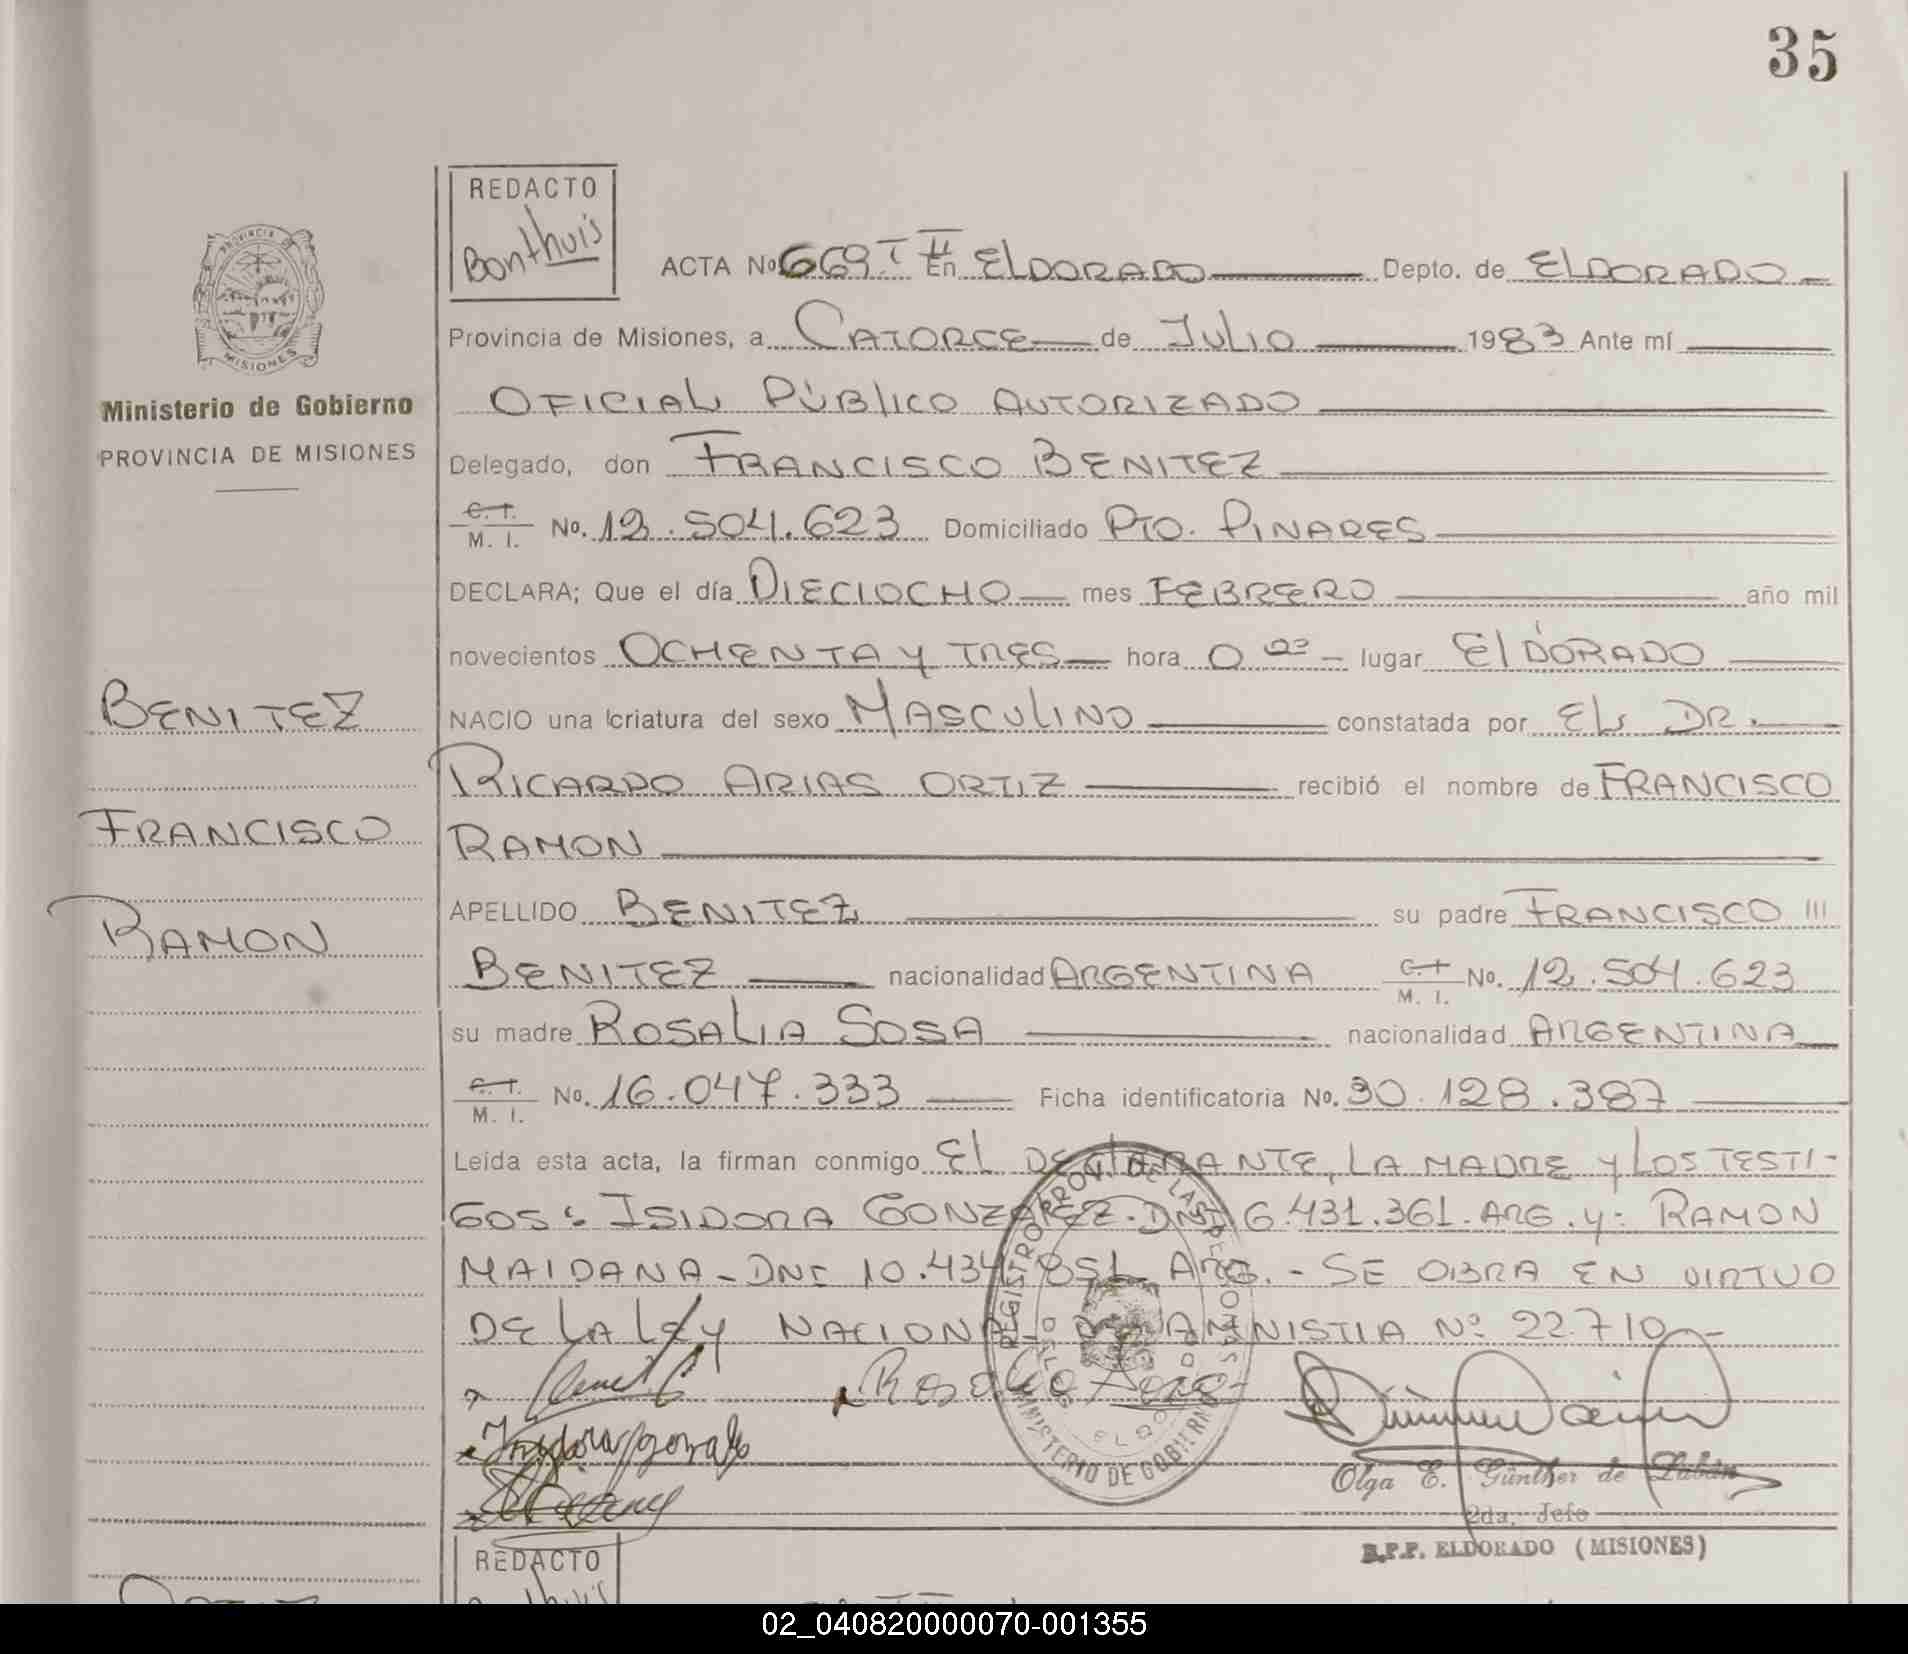 35
REDACTO
Bonthuis
PROVINCIA DE
MISIONES
Ministerio de Gobierno
PROVINCIA DE MISIONES
ACTA No 669 T II En ELDORADO Depto. de ELDORADO
Provincia de Misiones, a CATORCE de JULIO 1983 Ante mí
OFICIAL PÚBLICO AUTORIZADO
Delegado, don FRANCISCO BENITEZ
C. I. M. I. No. 12.504.623 Domiciliado PTO. PINARES
DECLARA; Que el día DIECIOCHO mes FEBRERO año mil
novecientos OCHENTA Y TRES hora 0 lugar ELDORADO
BENITEZ
NACIO una criatura del sexo MASCULINO constatada por EL DR.
RICARDO ARIAS ORTIZ recibió el nombre de FRANCISCO
FRANCISCO
RAMON
RAMON
APELLIDO BENITEZ su padre FRANCISCO
BENITEZ nacionalidad ARGENTINA C. I. M. I. No. 12.504.623
su madre ROSALIA SOSA nacionalidad ARGENTINA
C. I. M. I. No. 16.047.333 Ficha identificatoria No. 30.128.387
Leída esta acta, la firman conmigo EL DECLARANTE, LA MADRE Y LOS TESTI-
GOS: ISIDORA GONZALEZ. DNI 6.431.361. ARG. y: RAMON
MAIDANA - DNI 10.434.851 ARG. - SE OBRA EN VIRTUD
DE LA LEY NACIONAL DE AMNISTIA Nº 22.710 -
REGISTRO PROV. DE LAS PERSONAS
MINISTERIO DE GOBIERNO
ELDORADO
Rosalia Sosa
Isidora gonzalez
Olga E. Günther de Labán
2da. Jefe
R.P.P. ELDORADO (MISIONES)
REDACTO
02_040820000070-001355